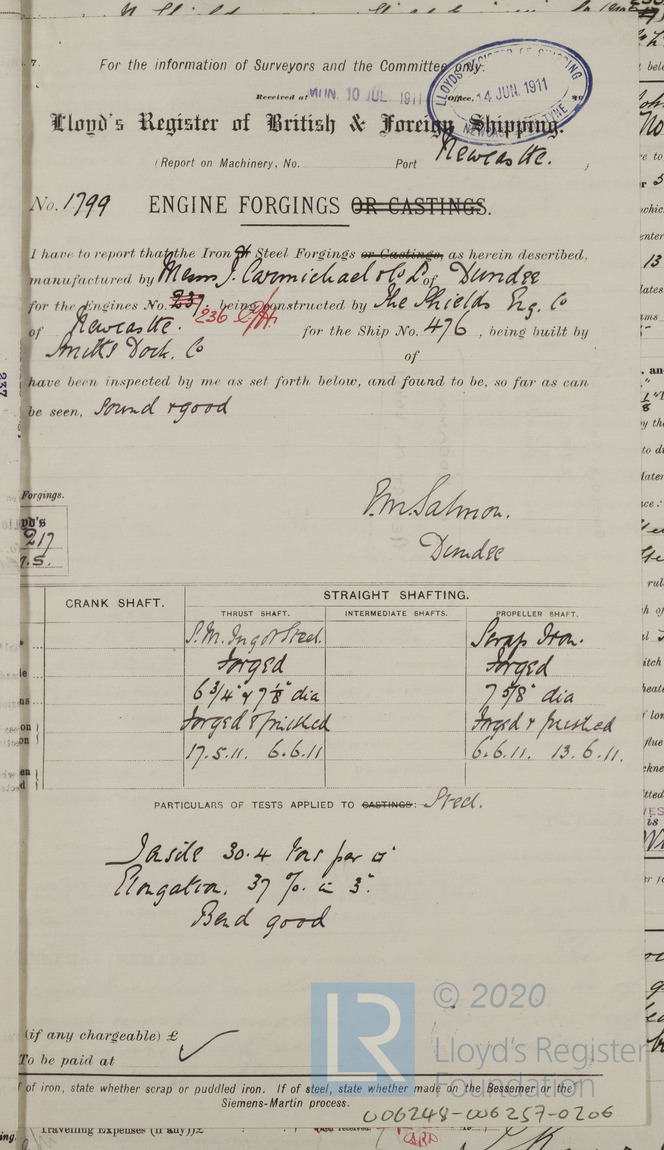 For the information of Surveyors and the Committee only.
Received at MON. 10 JUL. 1911 Office,
LLOYD'S REGISTER OF SHIPPING
14 JUN. 1911
NEWCASTLE-ON-TYNE
Lloyd's Register of British & Foreign Shipping.
(Report on Machinery, No. Port Newcastle. )
No. 1799 ENGINE FORGINGS OR CASTINGS.
I have to report that the Iron or Steel Forgings or Castings, as herein described,
manufactured by Messrs J. Carmichael & Co Ld of Dundee
for the Engines No. 237. being constructed by The Shields Eng. Co
236
of Newcastle. for the Ship No. 476, being built by
Smiths Dock. Co of
have been inspected by me as set forth below, and found to be, so far as can
be seen, sound & good
Forgings.
P.M. Salmon.
Dundee
217
CRANK SHAFT. STRAIGHT SHAFTING.
THRUST SHAFT. INTERMEDIATE SHAFTS. PROPELLER SHAFT.
S.M. Ingot Steel. Scrap Iron.
Forged Forged
6 3/4" & 7 1/8" dia 7 5/8" dia
Forged & finished Forged & finished
17.5.11. 6.6.11 6.6.11. 13.6.11.
PARTICULARS OF TESTS APPLIED TO CASTINGS: Steel.
Tensile 30.4 tons per □"
Elongation. 37 %. in 3".
Bend good
© 2020
LR
Lloyd's Register
Foundation
(if any chargeable) £
To be paid at
of iron, state whether scrap or puddled iron. If of steel, state whether made on the Bessemer or the
Siemens-Martin process.
006248-006257-0206
Travelling Expenses (if any) £